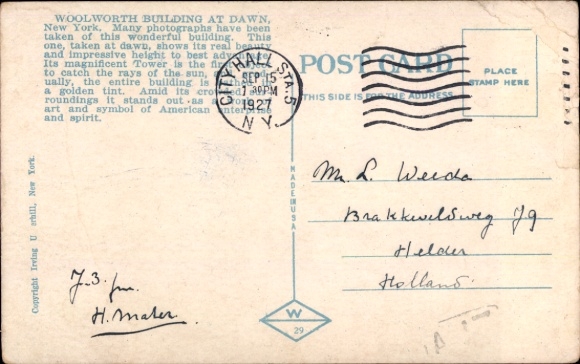 WOOLWORTH BUILDING AT DAWN,
New York. Many photographs have been
taken of this wonderful building. This
one, taken at dawn, shows its real beauty
and impressive height to best
Its magnificent Tower is the
to catch the rays of the sun,
ually, the entire building is
a golden tint. Amid its
roundings it stands out as a
art and symbol of American enterprise
and spirit.
CITY HALL STA. 5
SEP 15
7 PM
1927
N Y
POST CARD
THIS SIDE IS FOR THE ADDRESS
PLACE
STAMP HERE
MADE IN USA
Copyright Irving U erhill, New York.
Mr. L. Weeda
79
Helder
Holland.
H. Mater.
W
29